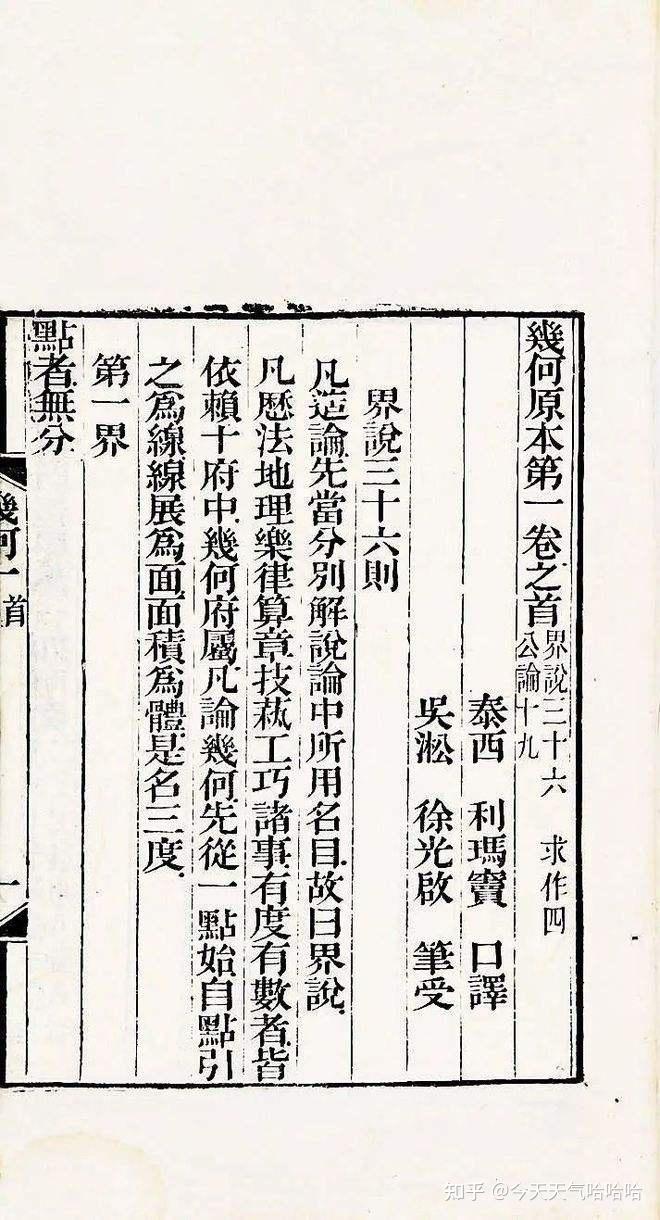 幾何原本第一卷之首界說三十六 求作四
公論十九
泰西 利瑪竇 口譯
吳淞 徐光啟 筆受
界說三十六則
凡造論.先當分別解說論中所用名目.故曰界說.
凡歷法地理樂律算章技藝工巧諸事.有度有數者.皆
依賴十府中.幾何府屬.凡論幾何.先從一點始.自點引
之為線.線展為面.面積為體.是名三度.
第一界
點者.無分.
幾何一首
一
知乎 @今天天气哈哈哈